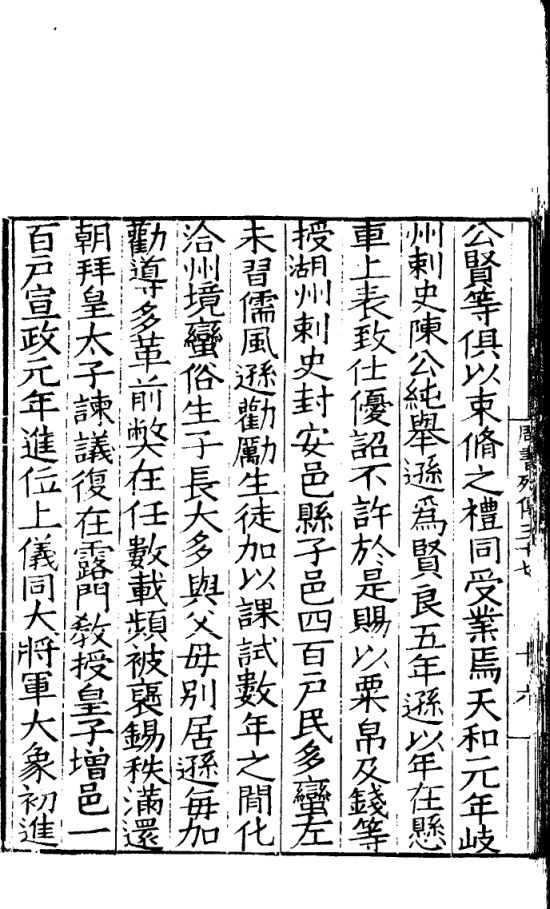 周書列傳三十七
十六
公賢等俱以束脩之禮同受業焉天和元年岐
州刺史陳公純舉遜爲賢良五年遜以年在懸
車上表致仕優詔不許於是賜以粟帛及錢等
授湖州刺史封安邑縣子邑四百戶民多蠻左
未習儒風遜勸勵生徒加以課試數年之閒化
洽州境蠻俗生子長大多與父母別居遜每加
勸導多革前弊在任數載頻被襃錫秩滿還
朝拜皇太子諫議復在露門教授皇子增邑一
百戶宣政元年進位上儀同大將軍大象初進